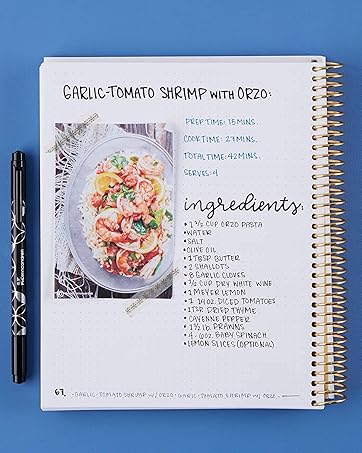 GARLIC-TOMATO SHRIMP WITH ORZO:
PREP TIME: 15 MINS.
COOK TIME: 27 MINS.
TOTAL TIME: 42 MINS.
SERVES: 4
ingredients:
• 1 ½ CUP ORZO PASTA
• WATER
• SALT
• OLIVE OIL
• 1 TBSP BUTTER
• 2 SHALLOTS
• 8 GARLIC CLOVES
• ¾ CUP DRY WHITE WINE
• 1 MEYER LEMON
• 1 14OZ DICED TOMATOES
• 1 TSP DRIED THYME
• CAYENNE PEPPER
• 1 ½ lb. PRAWNS
• 4-6oz. BABY SPINACH
• LEMON SLICES (OPTIONAL)
67. -GARLIC-TOMATO SHRIMP W/ ORZO · GARLIC-TOMATO SHRIMP W/ ORZO